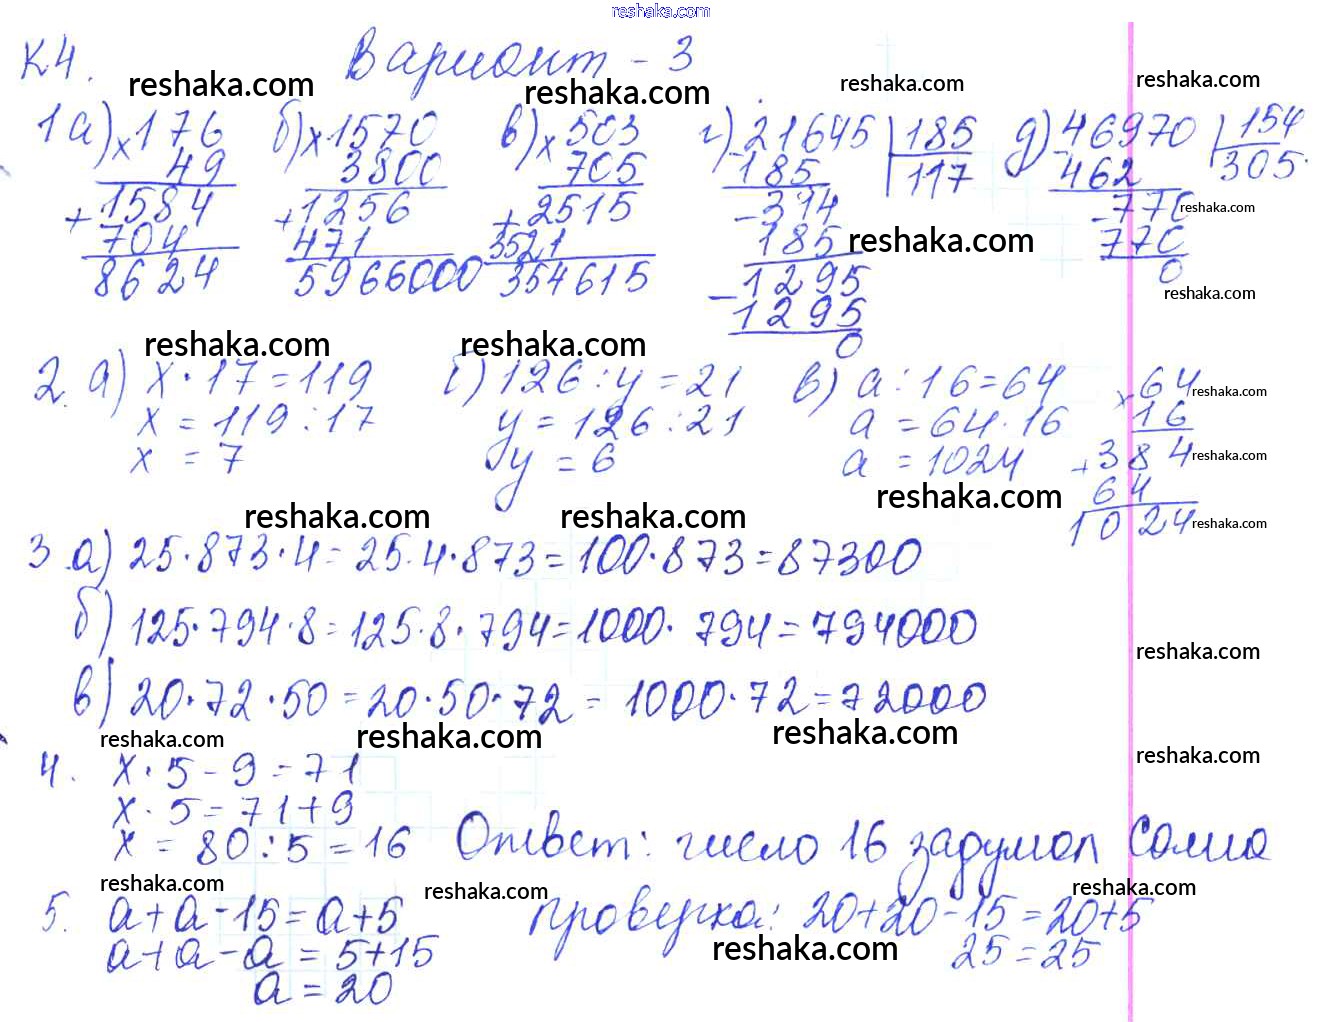 reshaka.com
К4. Вариант - 3
reshaka.com reshaka.com reshaka.com reshaka.com
1 а) × 176 б) × 1570 в) × 503 г) - 21645 | 185 д) - 46970 | 154
49 3800 705 185 117 462 305.
+ 1584 + 1256 + 2515 - 314 - 770 reshaka.com
704 471 3521 185 reshaka.com 770
8624 5966000 354615 - 1295 0
1295 reshaka.com
0
reshaka.com reshaka.com
2. а) x · 17 = 119 б) 126 : y = 21 в) a : 16 = 64 × 64 reshaka.com
x = 119 : 17 y = 126 : 21 a = 64 · 16 16
x = 7 y = 6 a = 1024 + 384 reshaka.com
reshaka.com 64
reshaka.com reshaka.com 1024 reshaka.com
3. а) 25 · 873 · 4 = 25 · 4 · 873 = 100 · 873 = 87300
б) 125 · 794 · 8 = 125 · 8 · 794 = 1000 · 794 = 794000
reshaka.com
в) 20 · 72 · 50 = 20 · 50 · 72 = 1000 · 72 = 72000
reshaka.com reshaka.com reshaka.com reshaka.com
4. x · 5 - 9 = 71
x · 5 = 71 + 9
x = 80 : 5 = 16 Ответ: число 16 задумал Сома
reshaka.com reshaka.com reshaka.com
5. a + a - 15 = a + 5 проверка: 20 + 20 - 15 = 20 + 5
a + a - a = 5 + 15 reshaka.com 25 = 25
a = 20